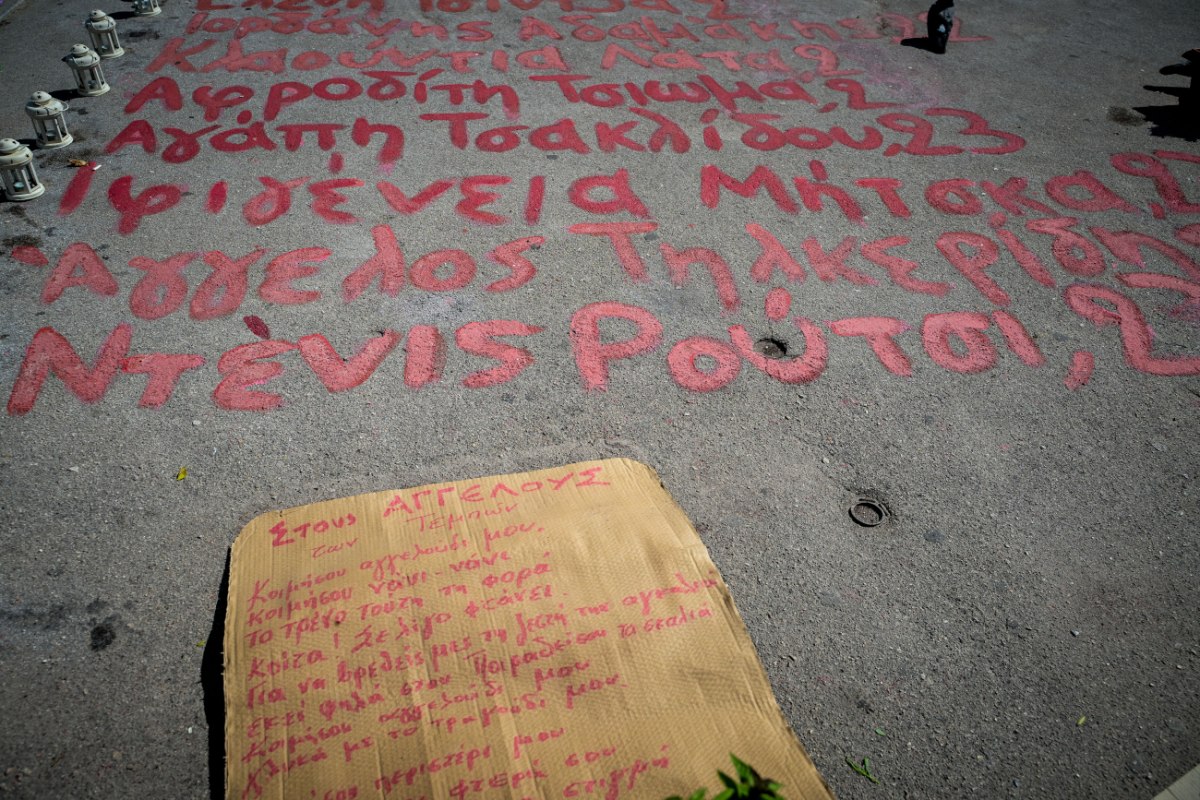 Ελένη Τσίντζα 2
Ιορδάνης Αδαμάκης 22
Κλαούντια Λάτα 2
Αφροδίτη Τσιωμά, 2
Αγάπη Τσακλίδου, 23
Ιφιγένεια Μήτσκα, 2
Άγγελος Τηλκερίδης
Ντένις Ρούτσι, 2
Στους ΑΓΓΕΛΟΥΣ
των Τεμπών
Κοιμήσου αγγελούδι μου.
κοιμήσου νάνι - νάνι
το τρένο τούτη τη φορά
Κοίτα! Σε λίγο φτάνει.
Για να βρεθείς μες τη ζεστή της αγκαλιά
εκεί ψηλά στου Παραδείσου τα σκαλιά
Κοιμήσου αγγελούδι μου
Γλυκά με το τραγούδι μου.
περιστέρι μου
φτερά σου
στιγμή